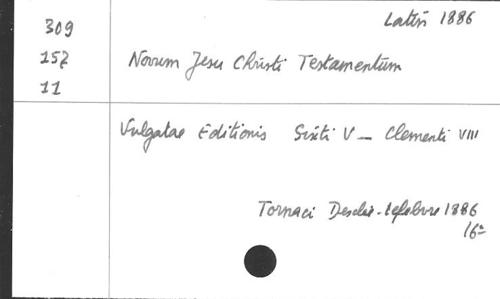 Latin 1886
309
157
11
Novum Jesu Christi Testamentum
Vulgatae Editionis Sixti V - Clementi VIII
Tornaci Desclée-Lefebvre 1886
16°